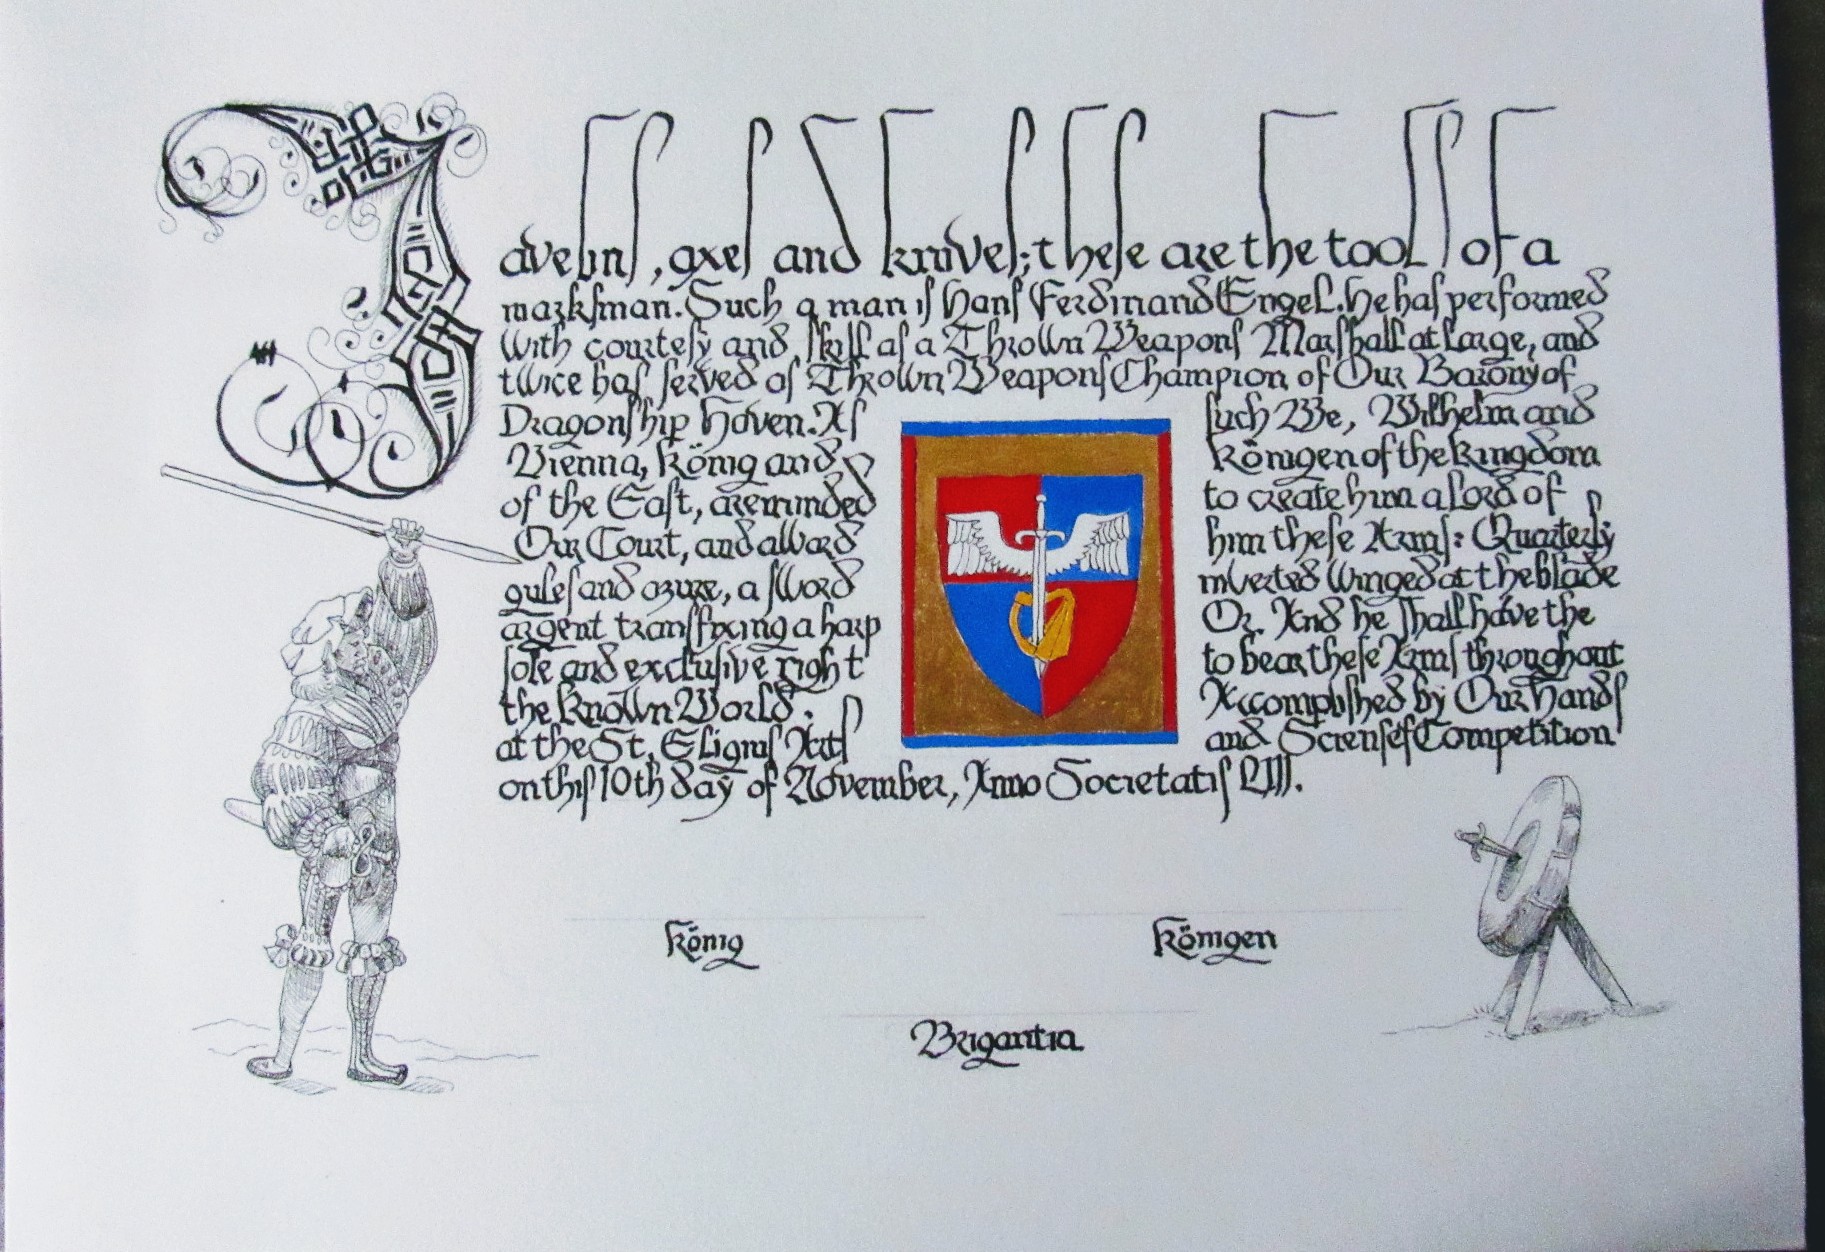 Javelins, axes and knives; these are the tools of a
marksman. Such a man is Hans Ferdinand Engel. He has performed
with courtesy and skill as a Thrown Weapons Marshall at Large, and
twice has served as Thrown Weapons Champion of Our Barony of
Dragonship Haven. As such We, Wilhelm and
Vienna, König and Königen of the Kingdom
of the East, are minded to create him a Lord of
Our Court, and award him these Arms: Quarterly
gules and azure, a sword inverted winged at the blade
argent transfixing a harp Or. And he shall have the
sole and exclusive right to bear these Arms throughout
the Known World. Accomplished by Our Hands
at the St. Eligius Arts and Scienses Competition
on this 10th day of November, Anno Societatis LIII.
König Königen
Brigantia